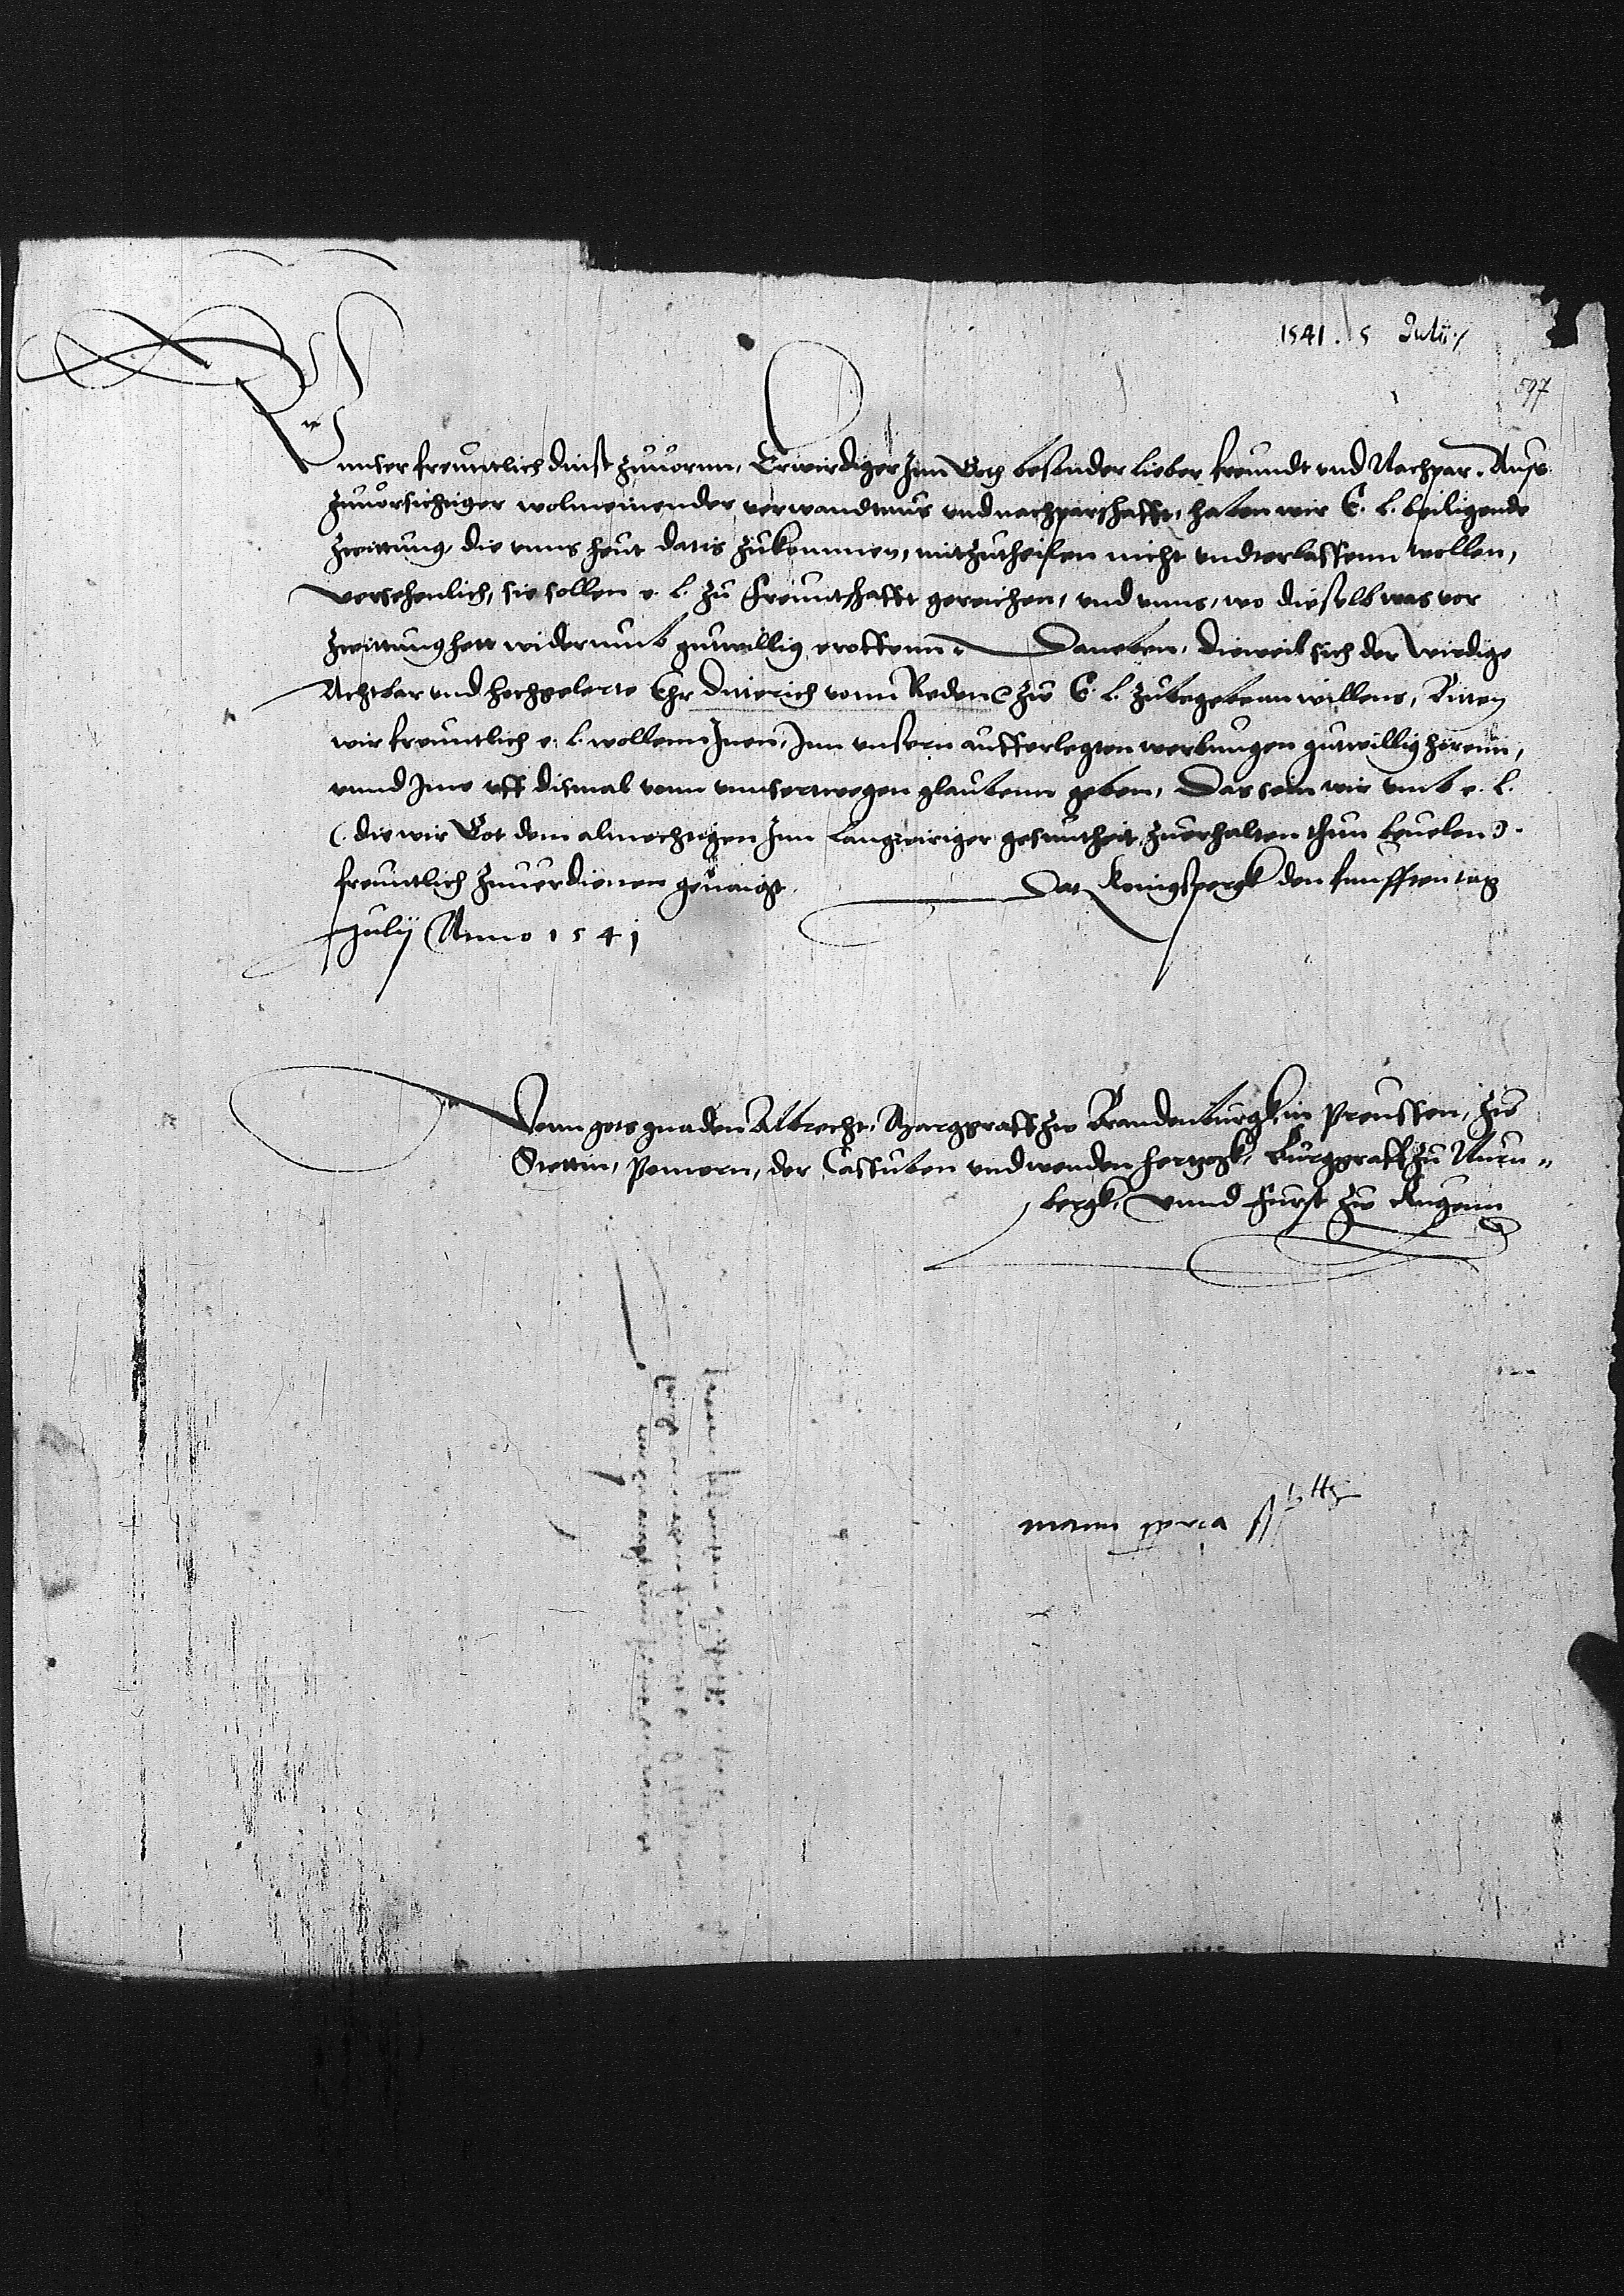 1541. 5 Julii
597
unser freuntlich dinst zuuornn, Erwirdiger Jnn Got besonder lieber freundt und Nachpar. Auß
zuuorsichtiger wolmeinender verwandtnus und nachparschafft, haben wir E. L. beiligende
Zeittung, die unns heut datis zukommen, mitzutheilen nicht undterlassenn wollen,
versehenlich, sie sollen e. l. zu freuntschafft gereichen, und unns, wo dieselb was vor
Zeittung hett widerumb gutwillig eroffenn. Daneben, dieweil sich der wirdige
Achtbar und hochgelerte Ehr Ditterich vonn Reden zw E. L. zubegebenn willens, Bitten
wir freuntlich e. l. wollenn Jnen, Jnn unsern aufferlegten werbungen gutwillig hörenn,
unnd Jme uff dismal vonn unnsertwegen glaubenn geben, Das sein wir umb e. l.
(. die wir Got dem almechtigen Jnn langwiriger gesuntheit zuerhalten thun beuelen .)
freuntlich zuuerdienen geneigt. Dat Konigspergk den funfften tag
Julij Anno 1541
Vonn gots gnaden Albrecht, Marggraff zw Brandenburgk in Preussen, zw
Stettin, Pomern, der Cassuben und wenden hertzogk, Burggraff zu Nurn-
bergk, unnd Furst zw Rugenn
manu ppria sst